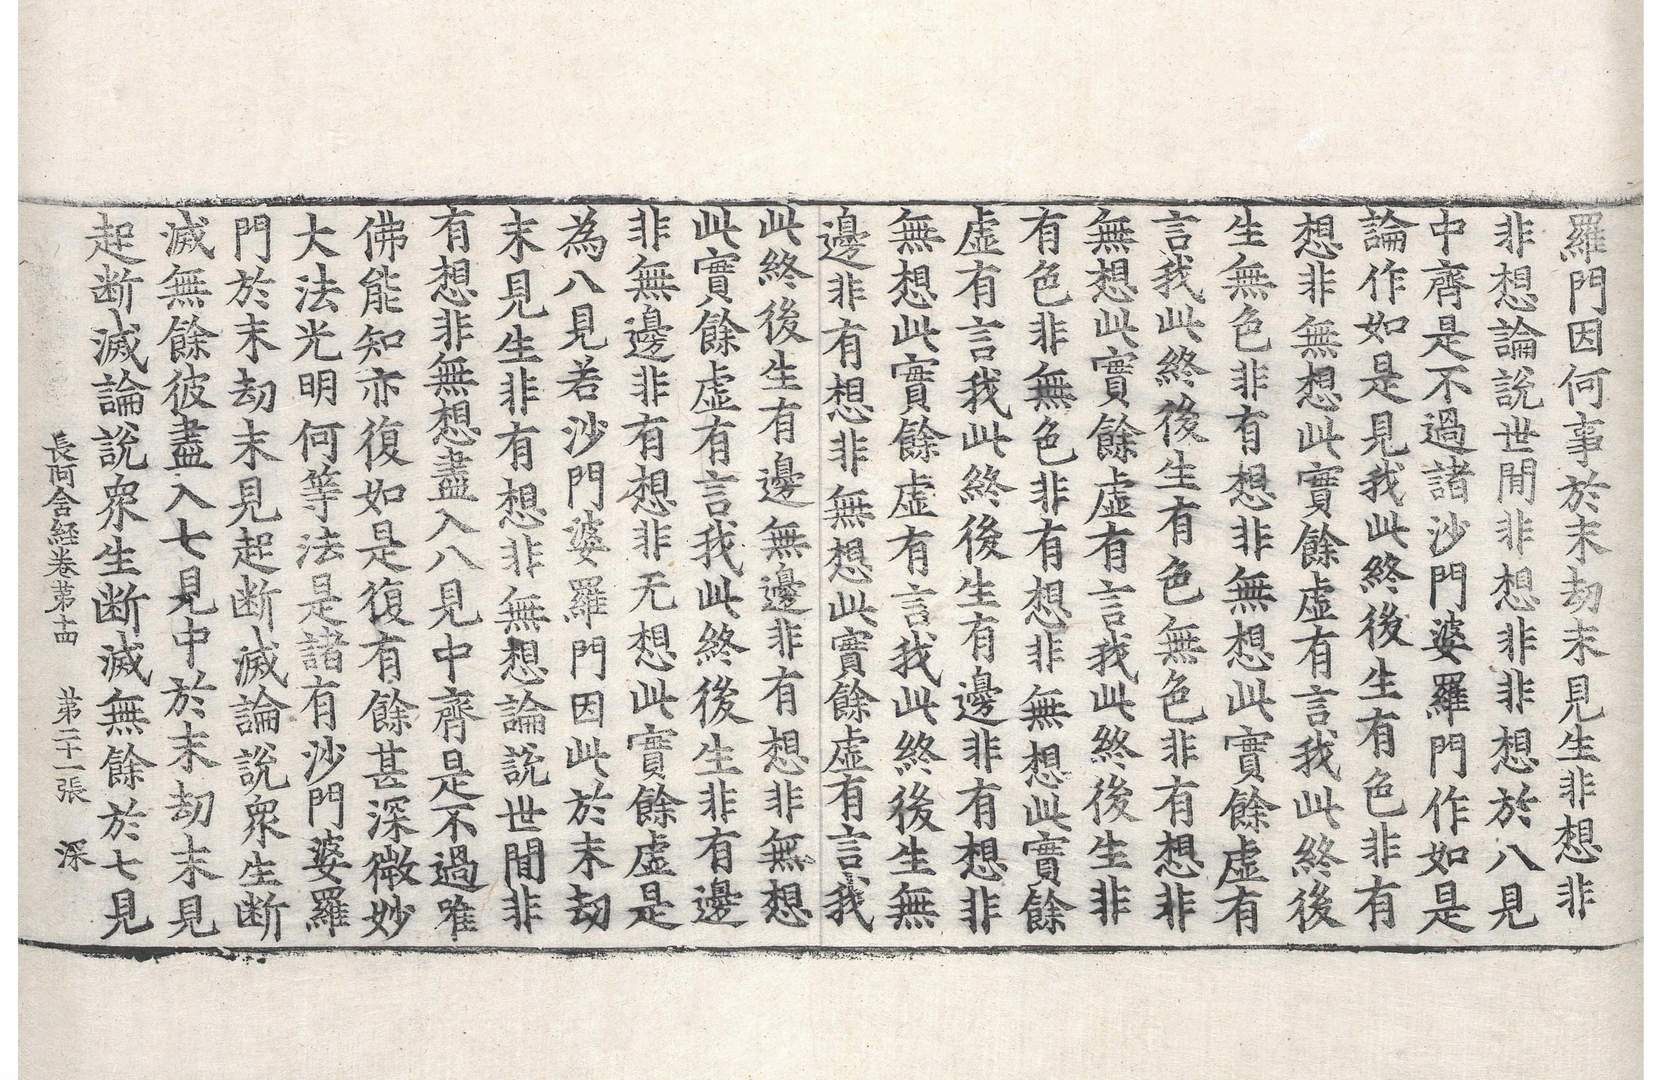 羅門因何事於末劫末見生非想非
非想論說世間非想非非想於八見
中齊是不過諸沙門婆羅門作如是
論作如是見我此終後生有色非有
想非無想此實餘虛有言我此終後
生無色非有想非無想此實餘虛有
言我此終後生有色無色非有想非
無想此實餘虛有言我此終後生非
有色非無色非有想非無想此實餘
虛有言我此終後生有邊非有想非
無想此實餘虛有言我此終後生無
邊非有想非無想此實餘虛有言我
此終後生有邊無邊非有想非無想
此實餘虛有言我此終後生非有邊
非無邊非有想非无想此實餘虛是
為八見若沙門婆羅門因此於末劫
末見生非有想非無想論說世間非
有想非無想盡入八見中齊是不過唯
佛能知亦復如是復有餘甚深微妙
大法光明何等法是諸有沙門婆羅
門於末劫末見起断滅論說衆生断
滅無餘彼盡入七見中於末劫末見
起断滅論說衆生断滅無餘於七見
長阿含経卷苐十四 苐二十一張 深